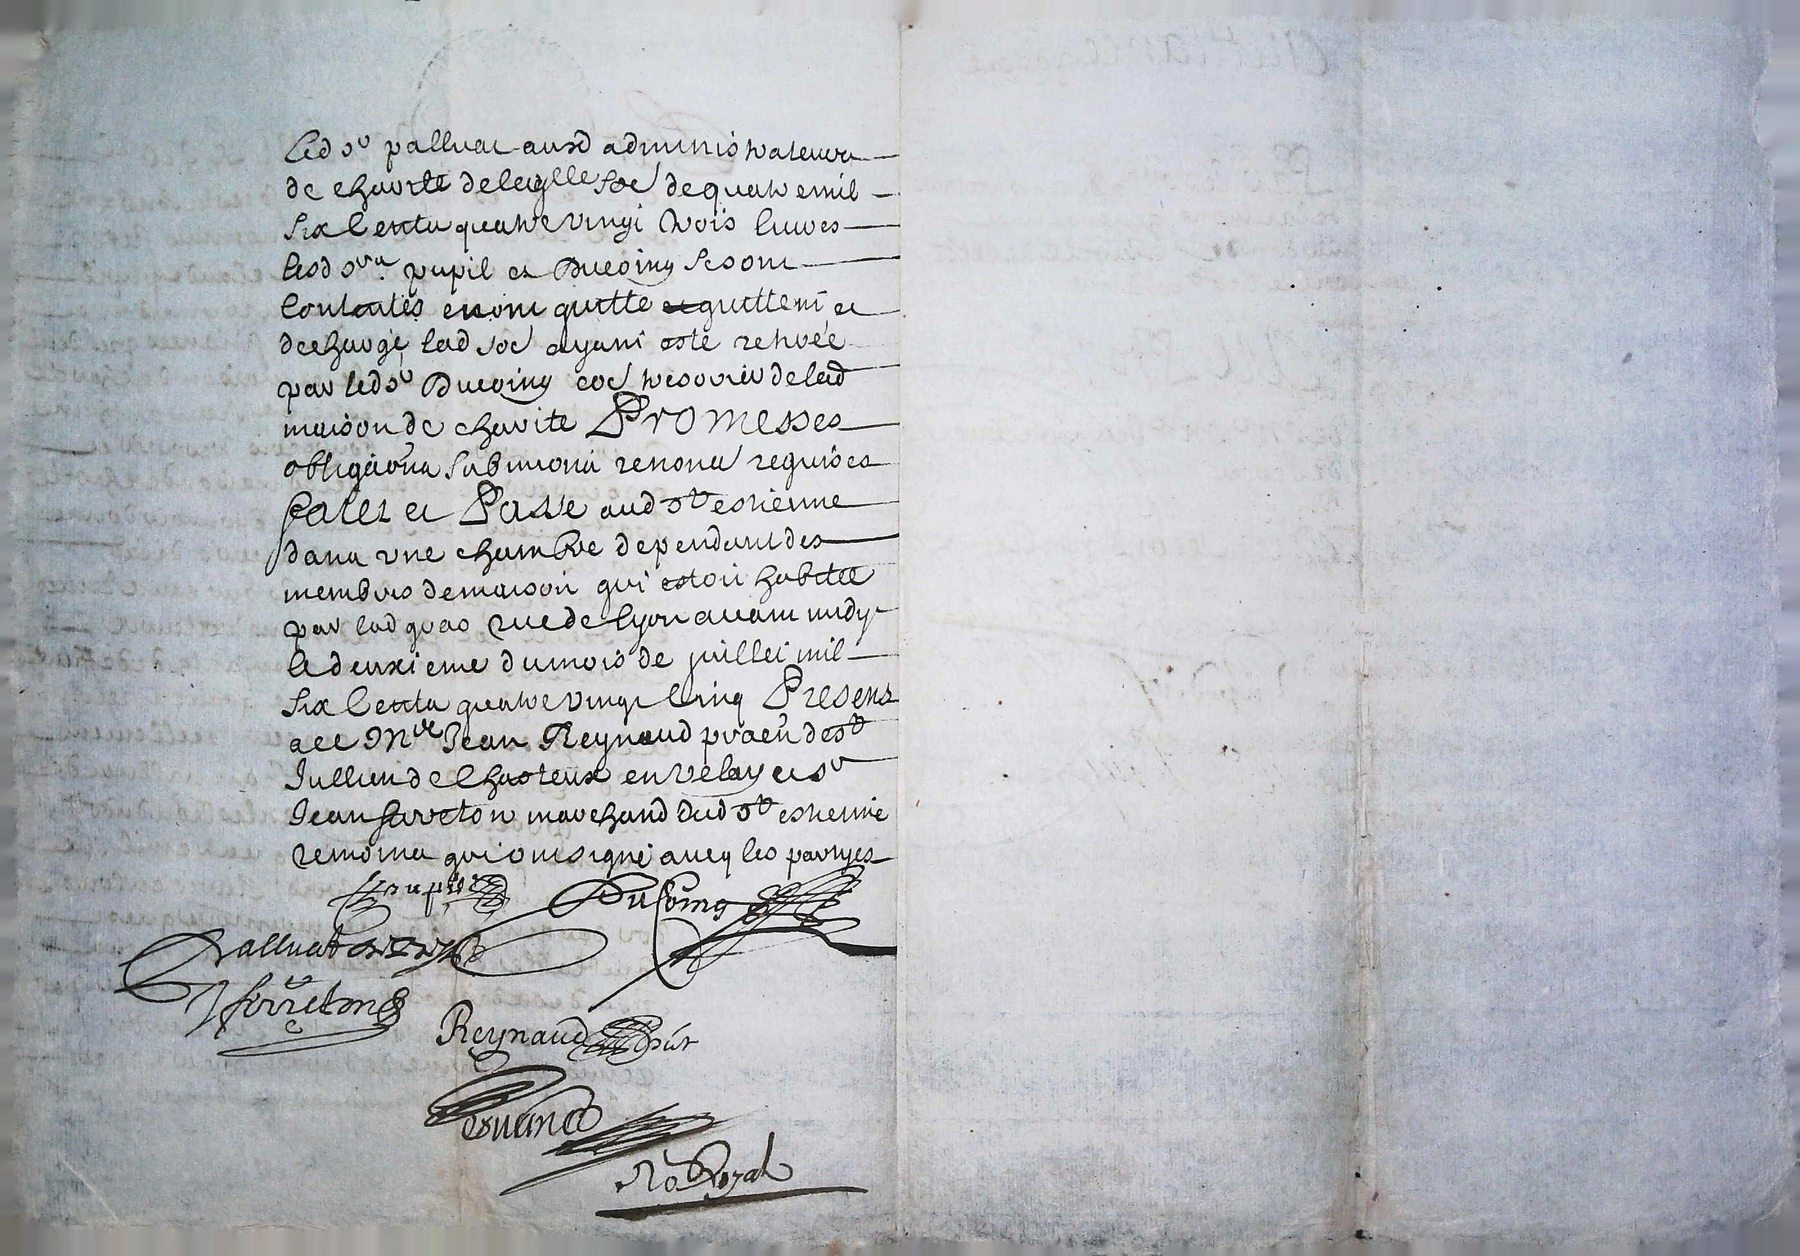 led sr palluat ausd administrateurs
de charite de laqlle soe de quatre mil
six cents quatre vingt trois livres
lesd srs pupil et Ducoing se sont
contentés en ont quitte et quittent et
décharge lad soe ayant esté retirée
par led sr Ducoing coe tresorier de lad
maison de charite Promesses
obligaons submions renons requises
faict et Passé aud st estienne
dans une chambre dependant des
membres de maison qui estoit habitée
par lad rue de lyon avant midy
le deuxieme du mois de juillet mil
six cents quatre vingt cinq Presens
a ce Mre Jean Reynaud de st
Jullien de Chasteux en velay et sr
Jean ferreton marchand dud st estienne
temoins qui ont signé avecq les partyes
Pupil Ducoing
Palluat
ferreton
Reynaud pnt
No Royal